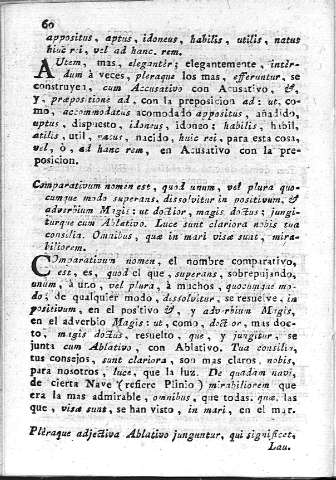 60
appositus, aptus, idoneus, habilis, utilis, natus
huic rei, vel ad hanc rem.
AUtem, mas, elegantèr; elegantemente, intèr-
dum à vèces, pleraque los mas, efferuntur, se
construyen, cum Accusativo con Acusativo, &,
y, præpositione ad, con la preposicion ad: ut, co-
mo, accommodatus acomodado appositus, añadido,
aptus, dispuesto, idoneus, idoneo; habilis, habil,
utilis, util, natus, nacido, huic rei, para esta cosa,
vel, ò, ad hanc rem, en Acusativo con la pre-
posicion.
Comparativum nomen est, quod unum, vel plura quo-
cumque modo superans, dissolvitur in positivum, &
adverbium Magis: ut doctior, magis doctus; jungi-
turque cum Ablativo. Luce sunt clariora nobis tua
consilia. Omnibus, quæ in mari visæ sunt, mira-
biliorem.
COmparativum nomen, el nombre comparativo,
est, es, quod el que, superans, sobrepujando,
unum, à uno, vel plura, à muchos, quocumque mo-
do; de qualquier modo, dissolvitur, se resuelve, in
positivum, en el positivo &, y, adverbium Magis,
en el adverbio Magis: ut, como, doctior, mas doc-
to, magis doctus, resuelto, que, y jungitur, se
junta cum Ablativo, con Ablativo. Tua consilia,
tus consejos, sunt clariora, son mas claros, nobis,
para nosotros, luce, que la luz. De quadam navi,
de cierta Nave (refiere Plinio) mirabiliorem que
era la mas admirable, omnibus, que todas. quæ, las
que, visæ sunt, se han visto, in mari, en el mar.
Plèraque adjectiva Ablativo junguntur, qui significet,
Lau.